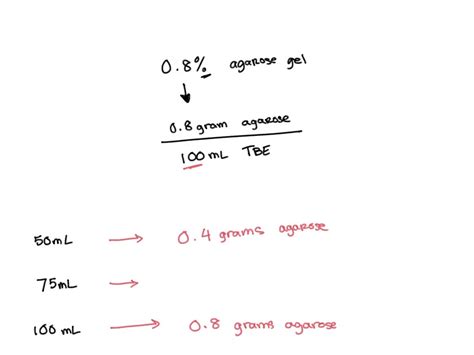 0.8% agarose gel
↓
0.8 gram agarose
100 mL TBE
50mL → 0.4 grams agarose
75mL →
100 mL → 0.8 grams agarose